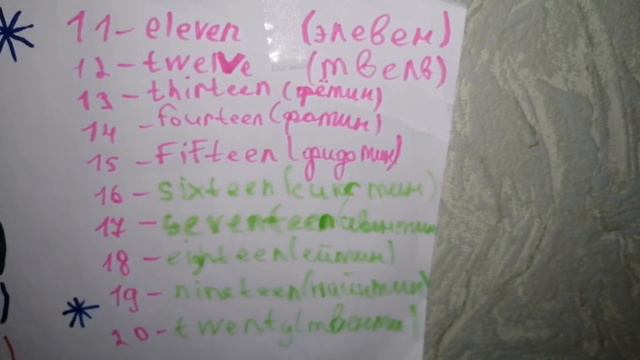 11- eleven (элевен)
12- twelve (твелв)
13- thirteen (фётин)
14 -fourteen (фотин)
15 -Fifteen
16 - sixteen (сикстин)
17 - seventeen
18 - eighteen (ейтин)
19 - nineteen (найнтин)
20 - twenty